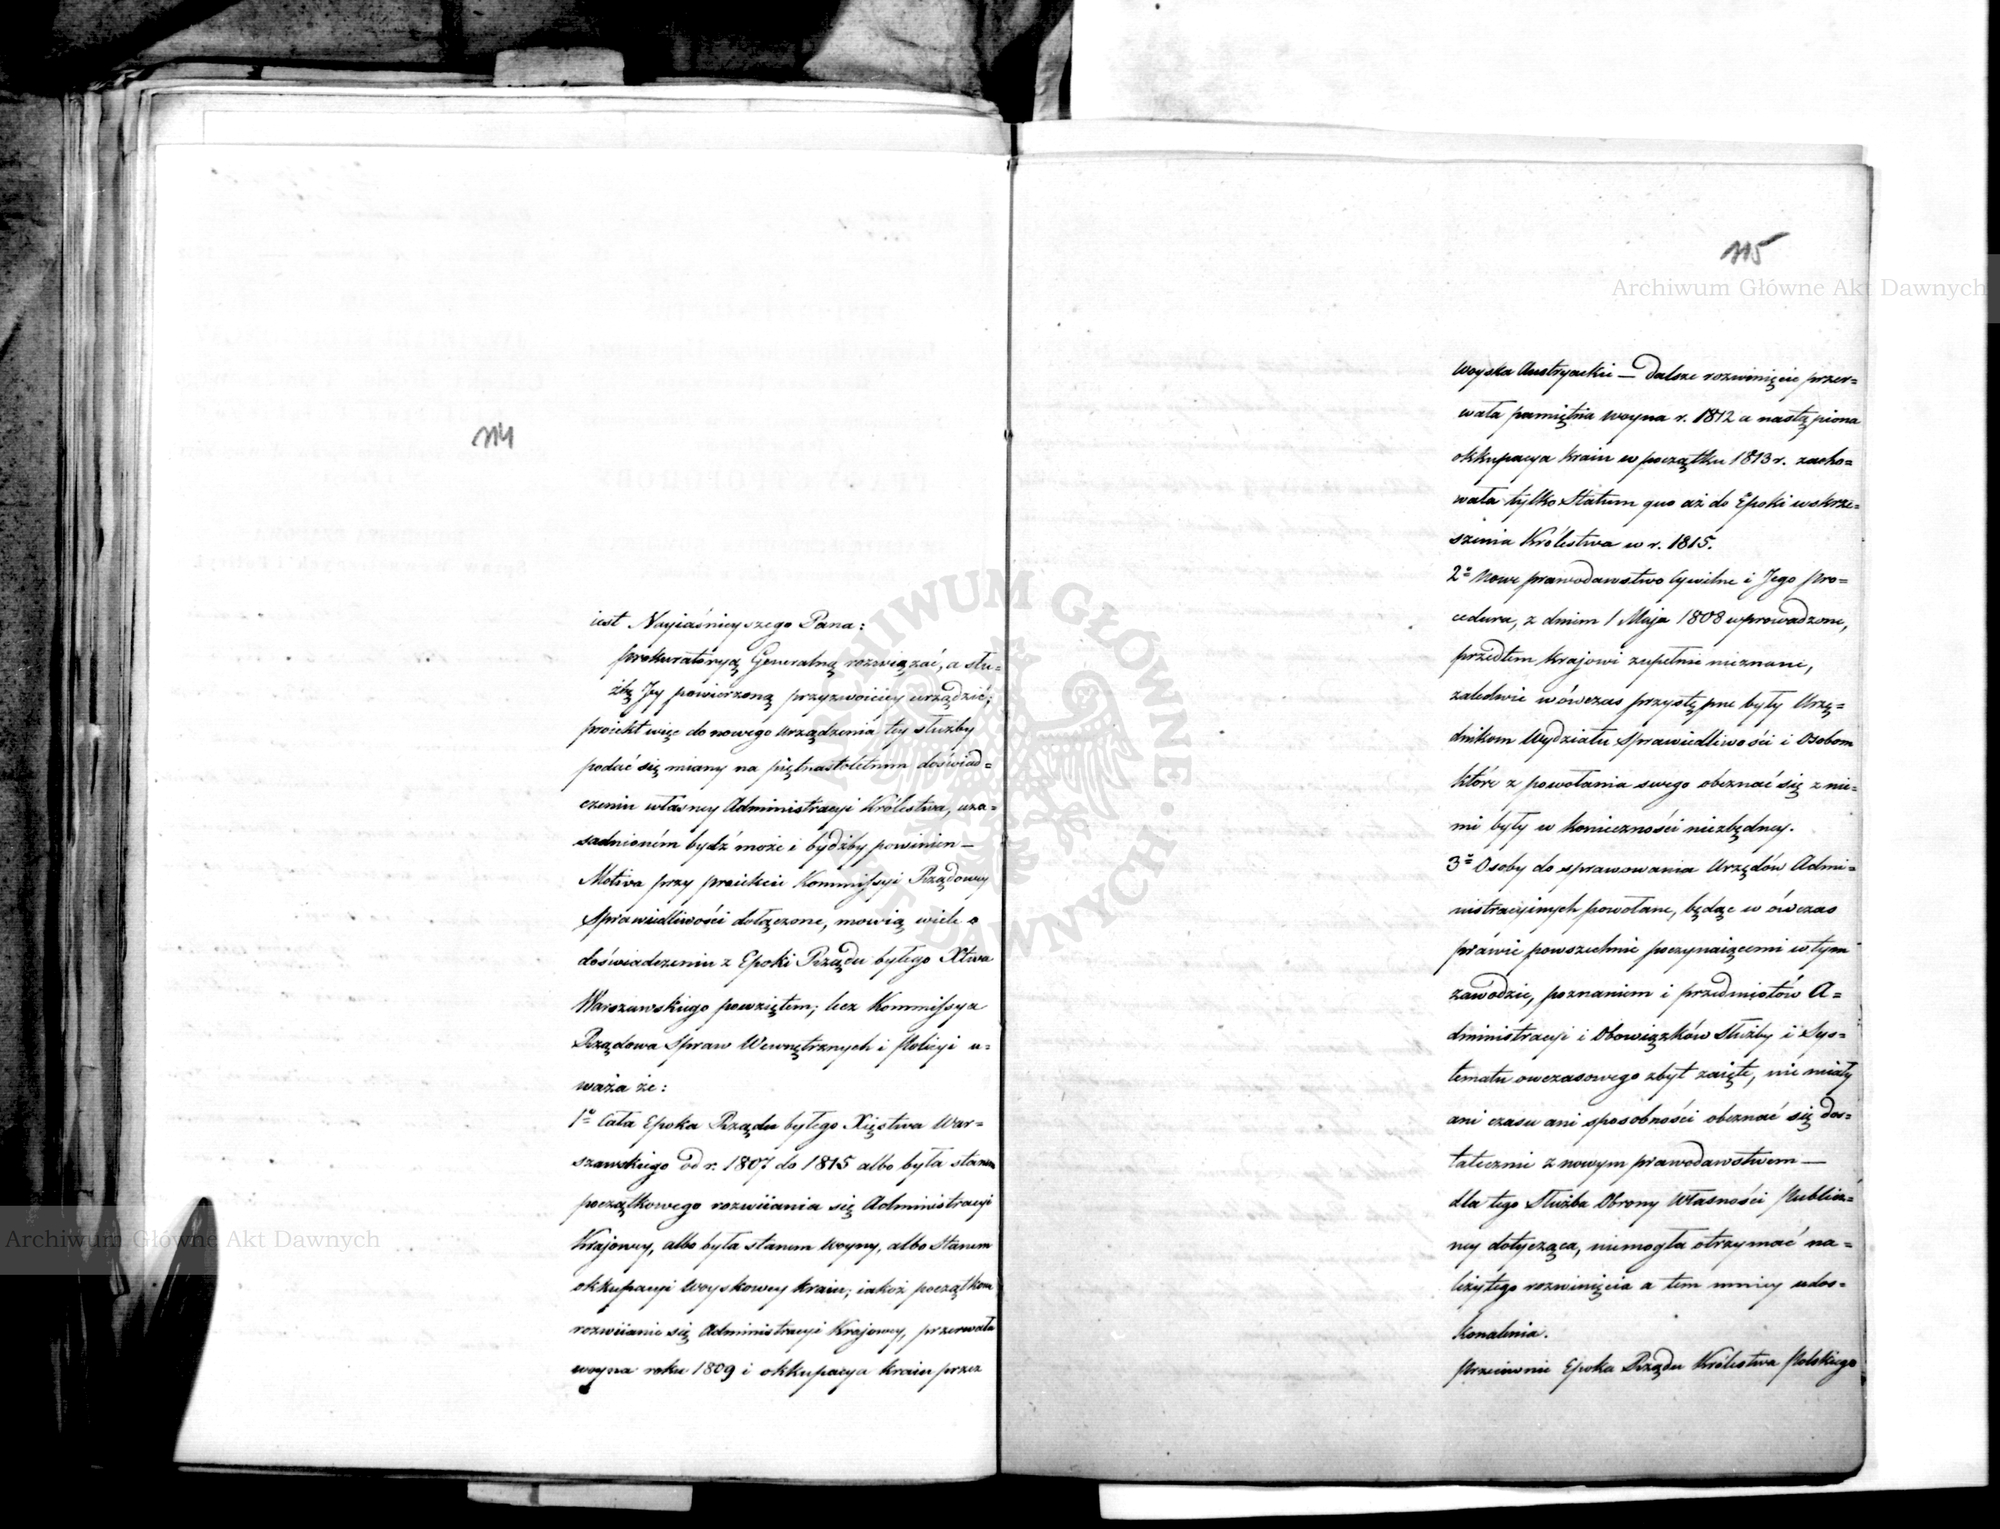 114
iest Nayiaśnieyszego Pana:
prokuratoryą Generalną rozwiązać, a słu-
żbę Jey powierzoną przyzwoiciey urządzić;
proiekt więc do nowego urządzenia tey służby
podać się miany na piętnastoletnim doświad=
czeniu własney Administracyi Królestwa, uza=
sadnioném bydź może i bydźby powinien —
Motiva przy proiekcie Kommissyi Rządowey
Sprawiedliwości dołączone, mowią wiele o
doświadczeniu z Epoki Rządu byłego Xtwa
Warszawskiego powziętem; lecz Kommissya
Rządowa Spraw Wewnętrznych i Policyi u=
waża że:
1o Cała Epoka Rządu byłego Xięstwa War=
szawskiego od r. 1807 do 1815 albo była stanem
początkowego rozwiiania się Administracyi
Krajowey, albo była stanem woyny, albo stanem
okkupacyi Woyskowey kraiu; iakoż początkowe
rozwiianie się Administracyi Krajowey, przerwała
woyna roku 1809 i okkupacya kraiu przez
115
Woyska Austryackie — Dalsze rozwinięcie przer=
wała pamiętna woyna r. 1812 a nastąpiona
okkupacya Kraiu w początku 1813 r. zacho=
wała tylko Statum quo aż do Epoki wskrze=
szenia Królestwa w r. 1815.
2o Nowe prawodawstwo Cywilne i Jego Pro=
cedura, z dniem 1 Maja 1808 wprowadzone,
przedtem Krajowi zupełnie nieznane,
zaledwie wówczas przystępne były Urzę=
dnikom Wydziału Sprawiedliwości i Osobom
które z powołania swego obeznać się z nie=
mi były w konieczności niezbędney.
3o Osoby do sprawowania Urzędów Admi=
nistracyinych powołane, będąc w ówczas
prawie powszechnie poczynaiącemi w tym
zawodzie, poznaniem i przedmiotów A=
dministracyi i Obowiązków Służby i Sys=
tematu owczasowego zbyt zaięte, nie miały
ani czasu ani sposobności obeznać się dos=
tatecznie z nowym prawodawstwem —
dla tego Służba Obrony Własności Publicz=
ney dotycząca, niemogła otrzymać na=
leżytego rozwinięcia a tem mniey udos=
konalenia.
Przeciwnie Epoka Rządu Królestwa Polskiego
Archiwum Główne Akt Dawnych
Archiwum Główne Akt Dawnych
ARCHIWUM GŁÓWNE AKT DAWNYCH